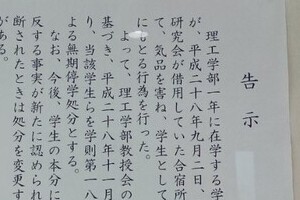 告示
理工学部一年に在学する学
が、平成二十八年九月二日、
研究会が借用していた合宿所
て、気品を害ね、学生として
にもとる行為を行った。
よって、理工学部教授会の
基づき、平成二十八年十一月
り、当該学生らを学則第一八
よる無期停学処分とする。
なお、今後、学生の本分に
反する事実が新たに認められ
断されたときは処分を変更す
がある。